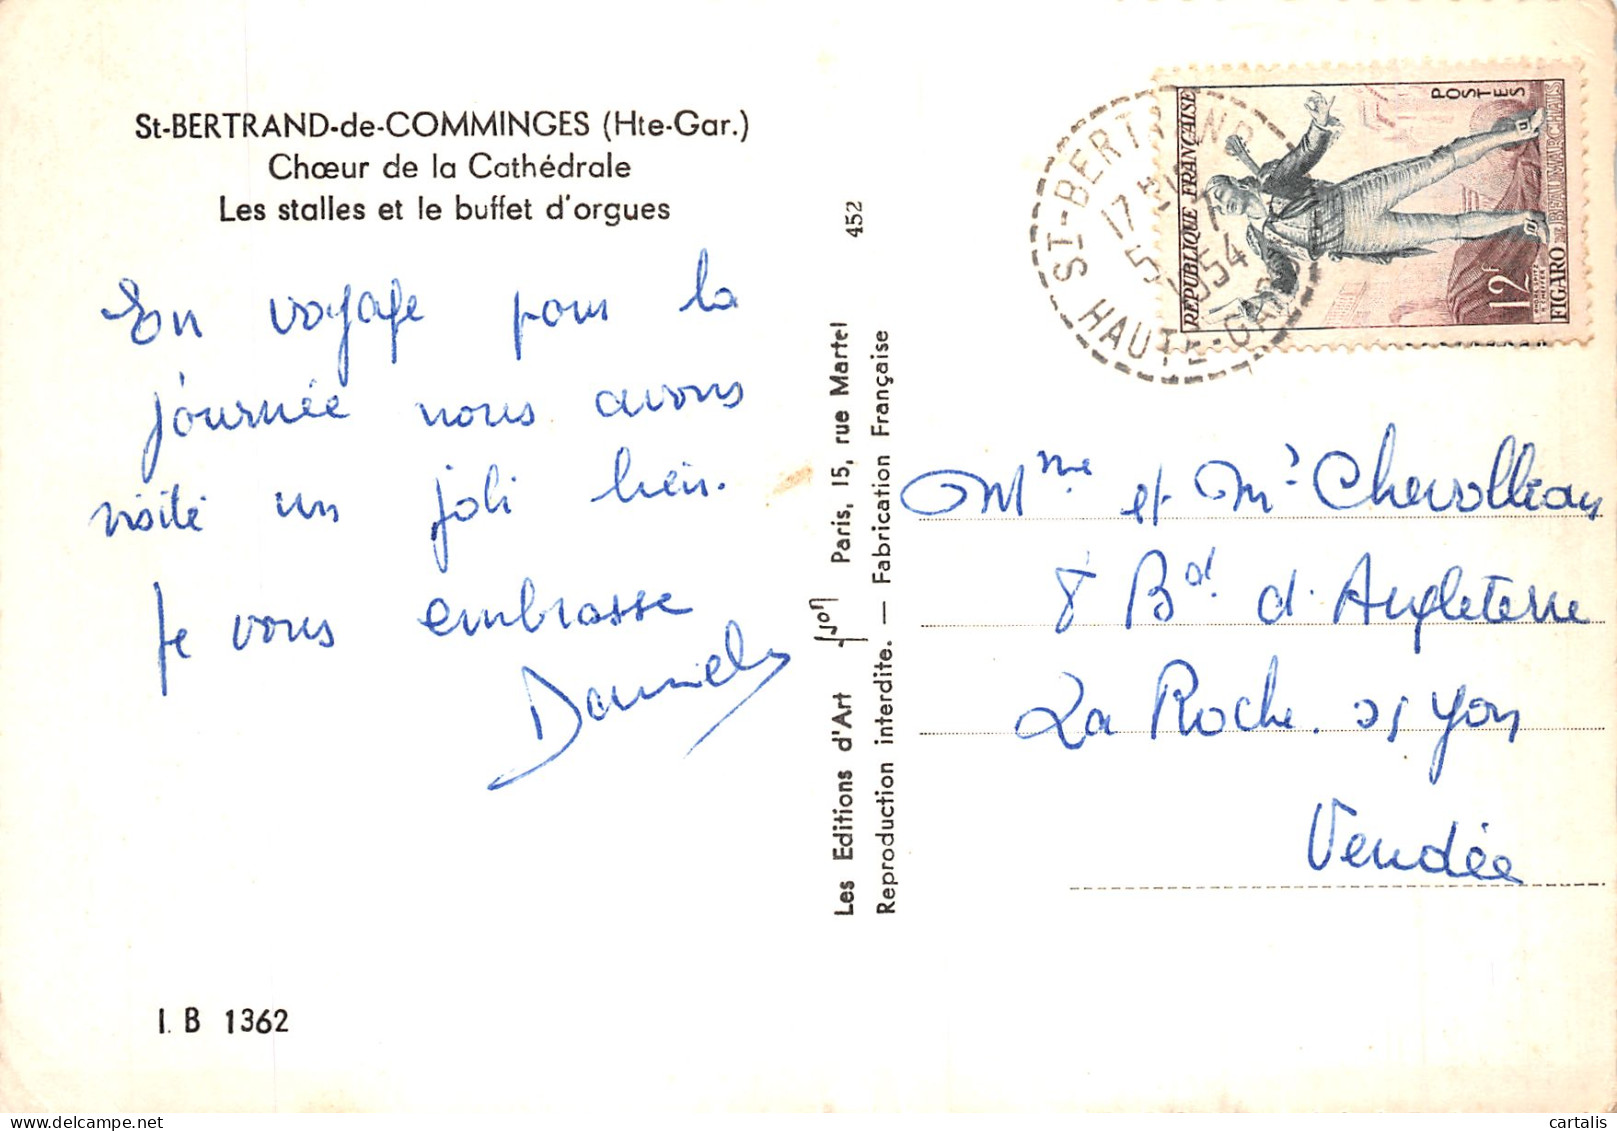 St-BERTRAND-de-COMMINGES (Hte-Gar.)
Chœur de la Cathédrale
Les stalles et le buffet d'orgues
En voyage pour la
journée nous avons
visité un joli lieu.
Je vous embrasse
I. B 1362
452
Les Editions d'Art yvon Paris, 15, rue Martel
Reproduction interdite. — Fabrication Française
ST-BERTRAND
17
5 54
HAUTE-GAR
REPUBLIQUE FRANÇAISE
POSTES
12F
FIGARO DE BEAUMARCHAIS
Mme et Mr Chevolleau
8 Bd. d'Angleterre
La Roche. s/ Yon
Vendée
cartalis